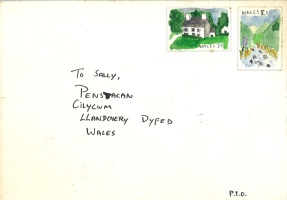 WALES 39
WALES
To Sally,
PENSTACAN
CILYCWM
LLANDOVERY DYFED
WALES
P.T.O.